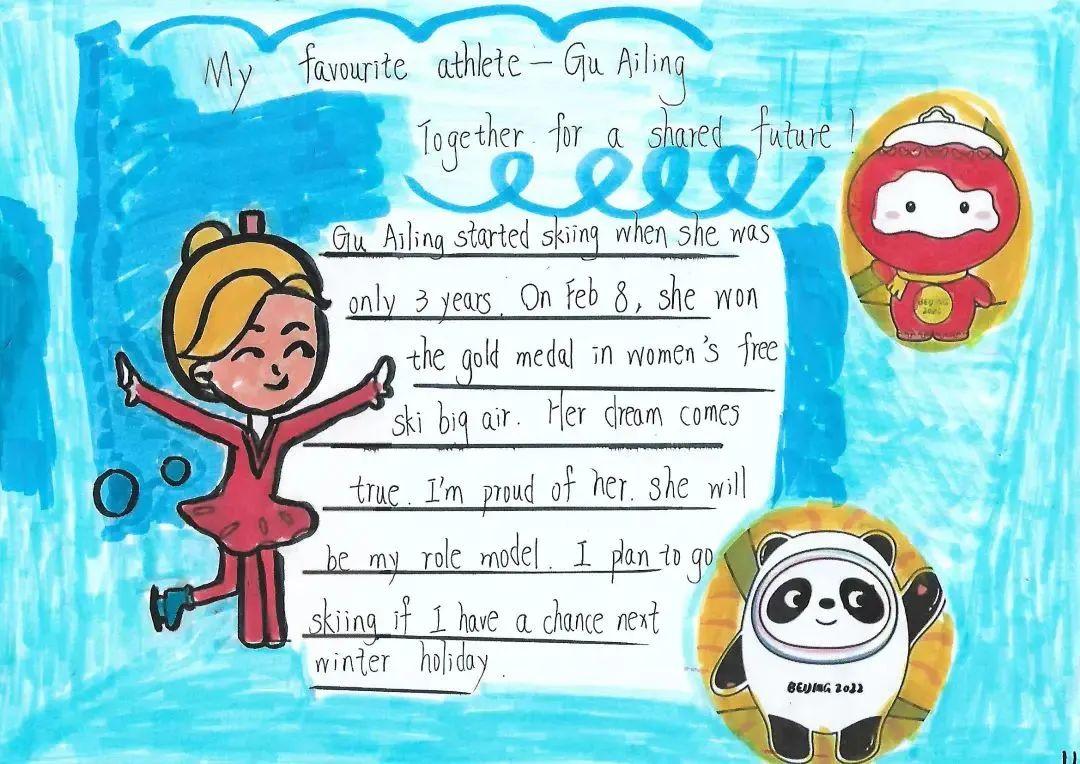 My favourite athlete — Gu Ailing
Together for a shared future !
Gu Ailing started skiing when she was
only 3 years. On Feb 8, she won
the gold medal in women's free
ski big air. Her dream comes
true. I'm proud of her. she will
be my role model. I plan to go
skiing if I have a chance next
winter holiday.
BEIJING
2022
BEIJING 2022